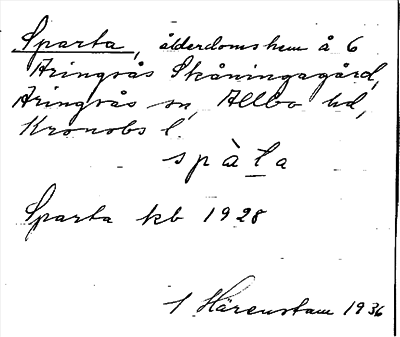 Sparta, ålderdomshem å 6
Aringsås Skåningagård,
Aringsås sn, Allbo hd,
Kronobs l.
spàḷa
Sparta kb 1928
1 Härenstam 1936